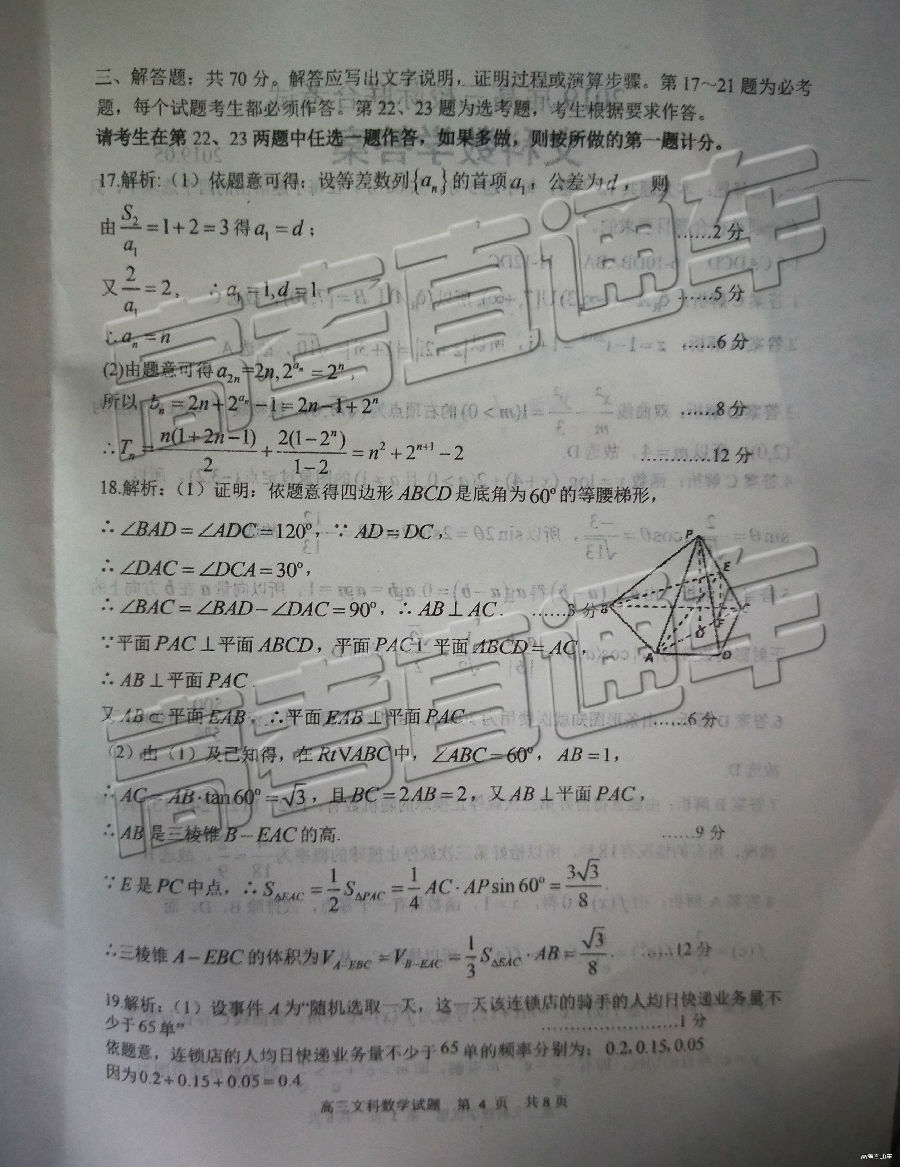 三、解答题：共 70 分。解答应写出文字说明，证明过程或演算步骤。第 17～21 题为必考
题，每个试题考生都必须作答。第 22、23 题为选考题，考生根据要求作答。
请考生在第 22、23 两题中任选一题作答，如果多做，则按所做的第一题计分。
17.解析：（1）依题意可得：设等差数列{aₙ}的首项a₁，公差为d， 则
由S₂/a₁=1+2=3得a₁=d； ……2 分
又2/a₁=2， ∴a₁=1,d=1 ……5 分
∴aₙ=n ……6 分
(2)由题意可得a₂ₙ=2n,2^{aₙ}=2ⁿ，
所以 bₙ=2n+2^{aₙ}-1=2n-1+2ⁿ ……8 分
∴Tₙ=n(1+2n-1)/2+2(1-2ⁿ)/(1-2)=n²+2ⁿ⁺¹-2 …………12 分
18.解析：（1）证明：依题意得四边形 ABCD 是底角为60°的等腰梯形，
∴∠BAD=∠ADC=120°，∵ AD=DC，
∴∠DAC=∠DCA=30°，
∴∠BAC=∠BAD-∠DAC=90°，∴ AB⊥AC． ……3 分
∵平面 PAC⊥平面 ABCD，平面 PAC∩平面 ABCD=AC，
∴ AB⊥平面 PAC．
又 AB⊂平面 EAB，∴平面 EAB⊥平面 PAC ……6 分
（2）由（1）及已知得，在 Rt∨ABC 中，∠ABC=60°，AB=1，
∴ AC=AB·tan60°=√3，且 BC=2AB=2，又 AB⊥平面 PAC，
∴ AB 是三棱锥 B-EAC 的高. ……9 分
∵ E 是 PC 中点，∴ S△EAC=1/2S△PAC=1/4AC·APsin60°=3√3/8．
∴三棱锥 A-EBC 的体积为V_{A-EBC}=V_{B-EAC}=1/3S△EAC·AB=√3/8． ……12 分
P
E
B
C
A
D
19.解析：（1）设事件 A 为“随机选取一天，这一天该连锁店的骑手的人均日快递业务量不
少于65单” ……………………1 分
依题意，连锁店的人均日快递业务量不少于65单的频率分别为：0.2,0.15,0.05
因为0.2+0.15+0.05=0.4
高三文科数学试题 第 4 页 共8页
高考直通车
高考直通车